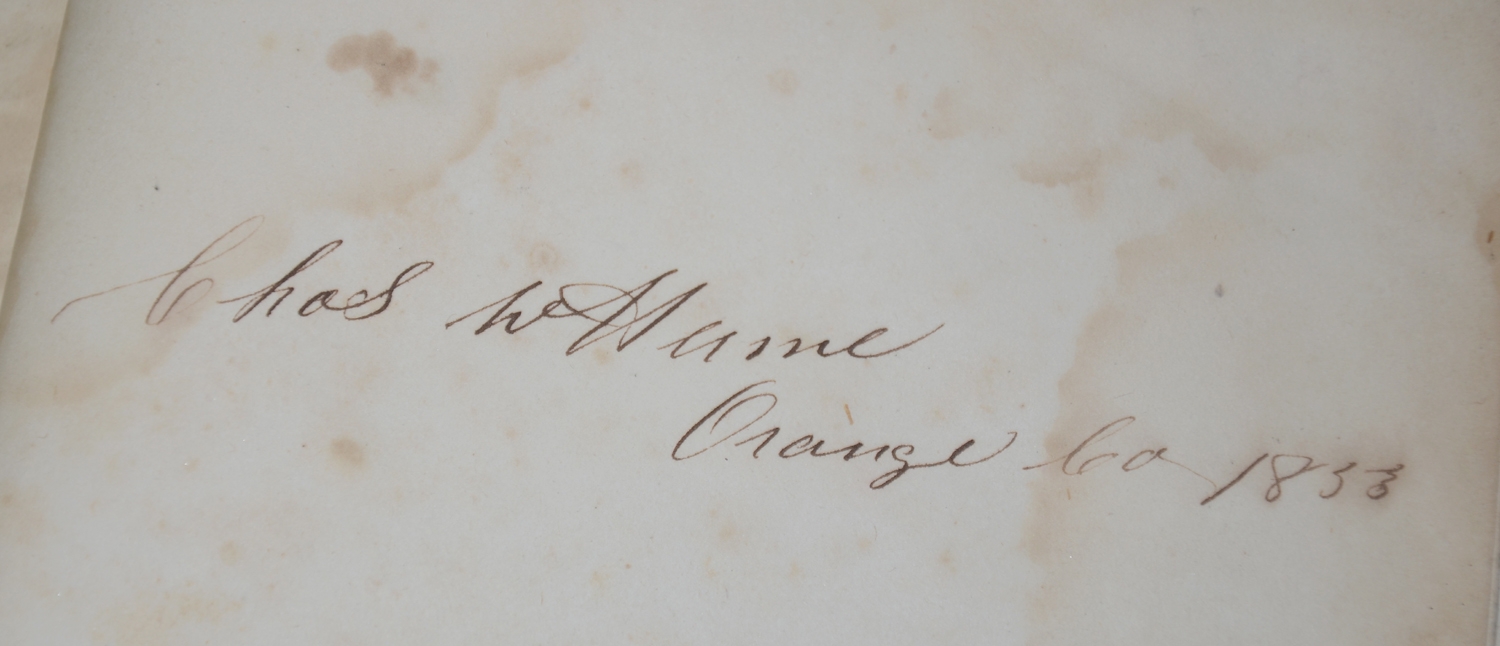 Chas W Hume
Orange Co 1833